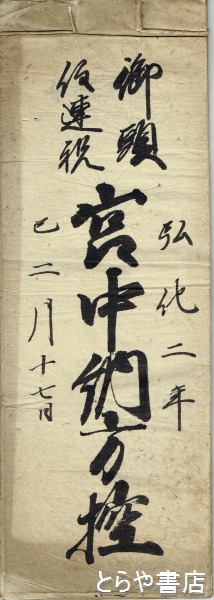 弘化二年
御頭
仮連税
宮中納方控
巳二月十七日
とらや書店